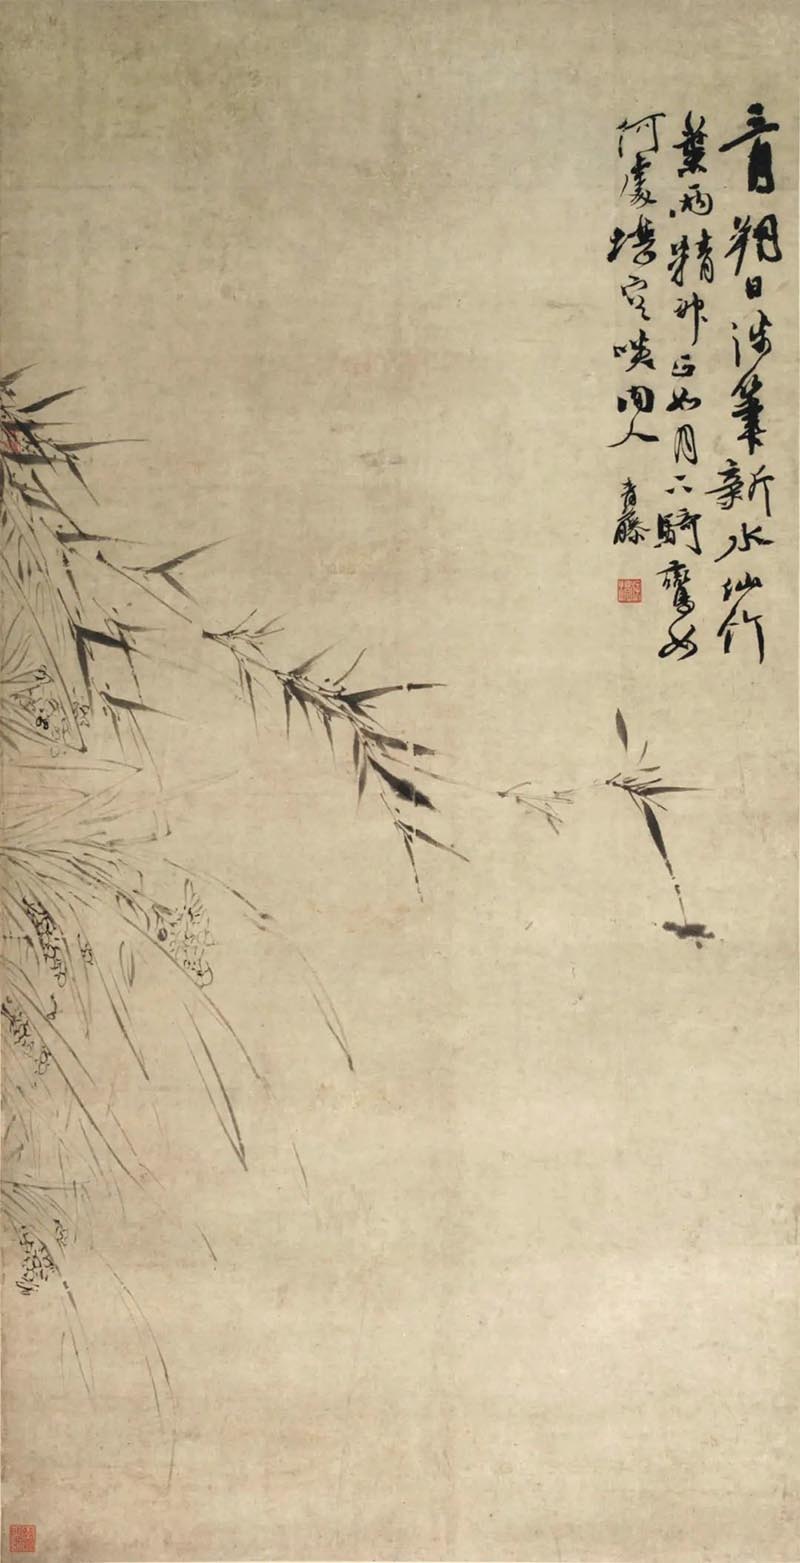 二月朔日涉筆新水仙竹
葉兩精神正如月下騎鸞女
何處堪容啖肉人
青藤